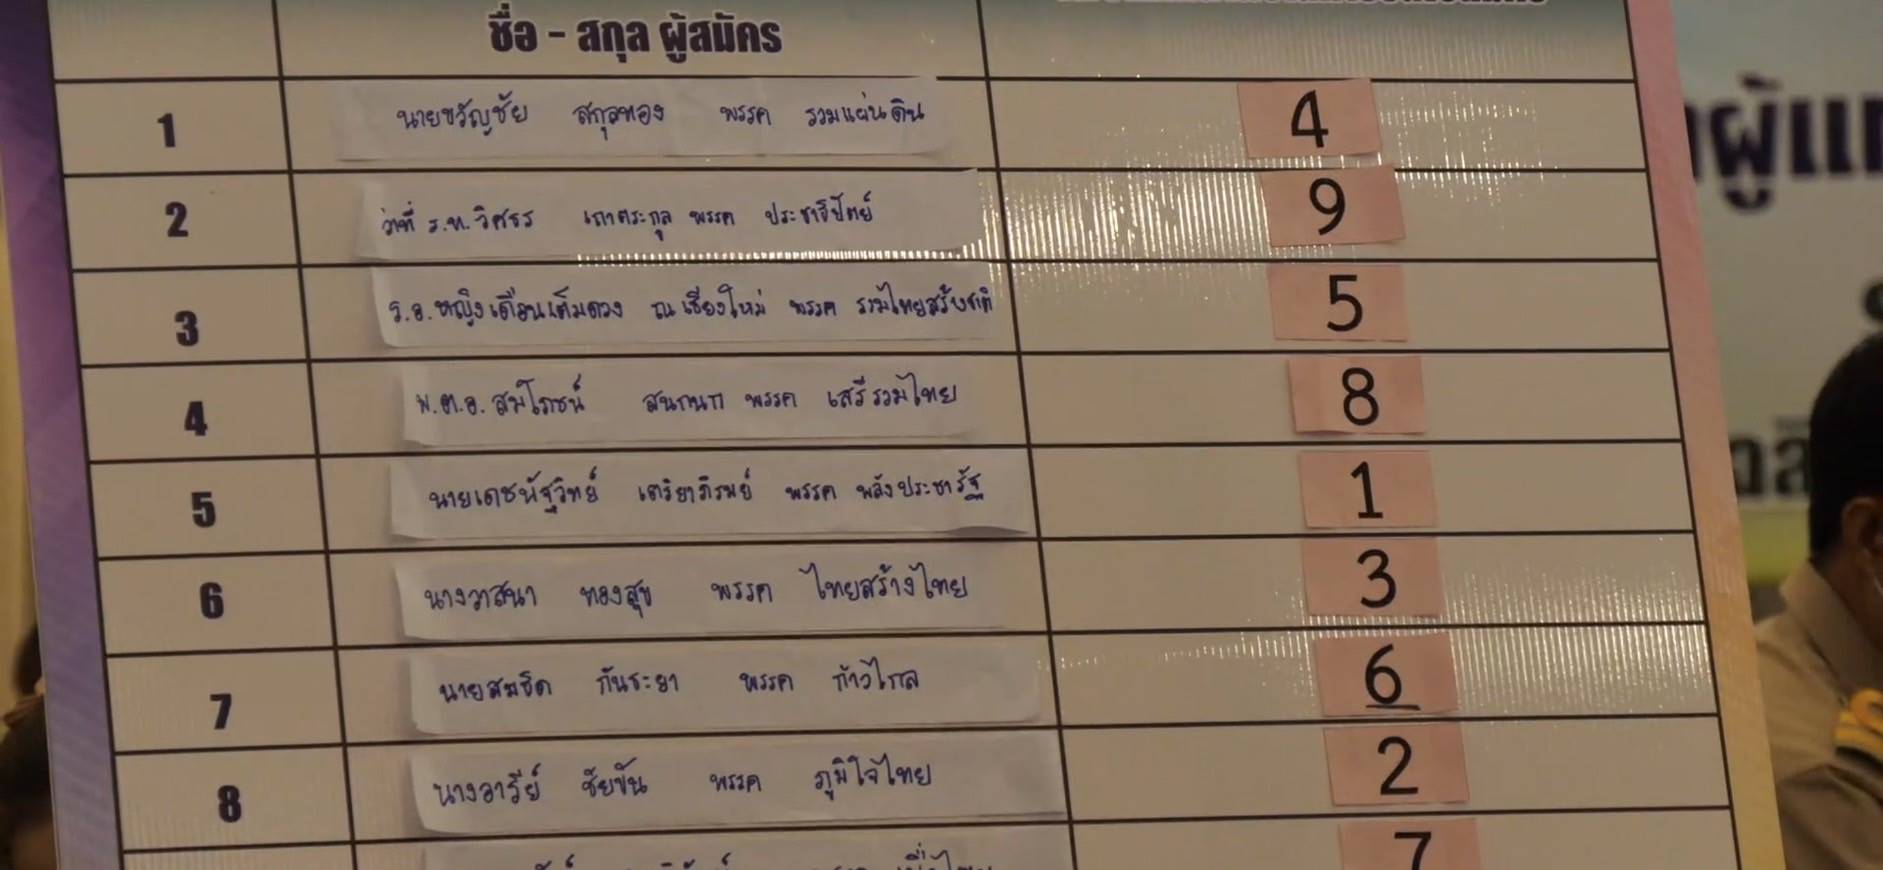 ชื่อ - สกุล ผู้สมัคร
1 นายขวัญชัย สกุลทอง พรรค รวมแผ่นดิน 4
2 ว่าที่ ร.ท.วิศธร เถาตระกูล พรรค ประชาธิปัตย์ 9
3 ร.อ.หญิงเดือนเต็มดวง ณ เชียงใหม่ พรรค รวมไทยสร้างชาติ 5
4 พ.ต.อ. สมโภชน์ พรรค เสรีรวมไทย 8
5 นายเดชนัฐวิทย์ เตริยาภิรมย์ พรรค พลังประชารัฐ 1
6 นางวาสนา ทองสุข พรรค ไทยสร้างไทย 3
7 นายสมชิด กันธะยา พรรค ก้าวไกล 6
8 นางอารีย์ ชัยขัน พรรค ภูมิใจไทย 2
7
ผู้แท